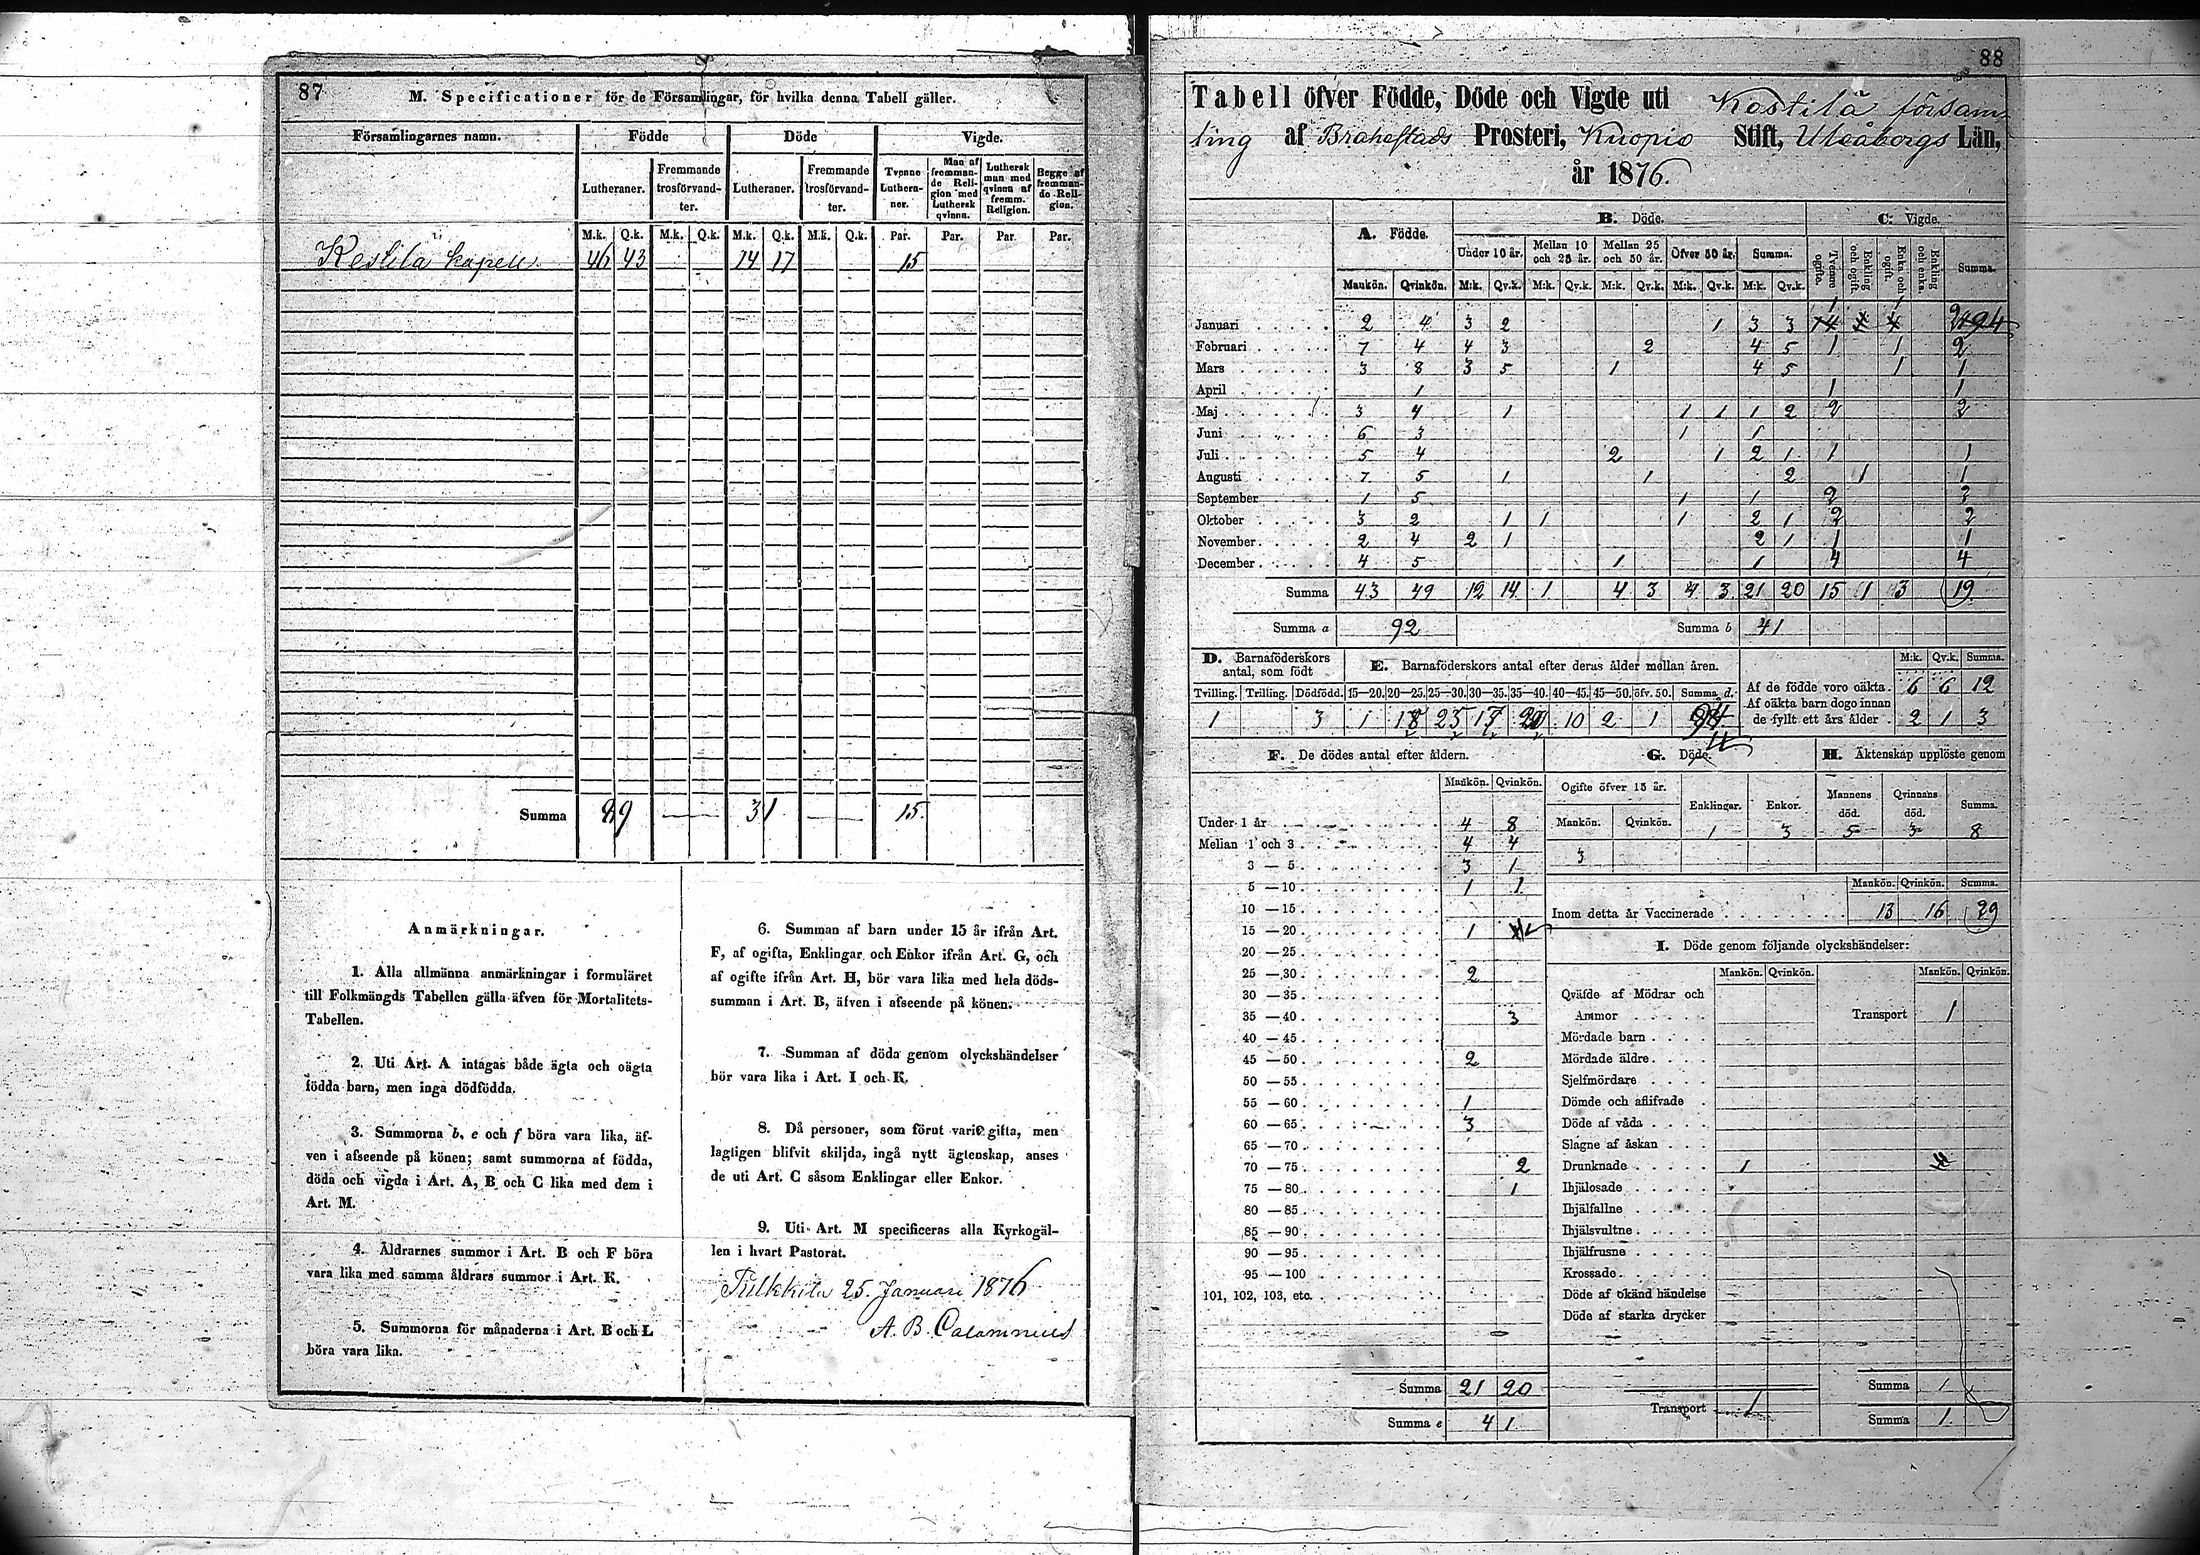 87
M. Specificationer för de Församlingar, för hvilka denna Tabell gäller.
Församlingarnes namn. Födde Döde Vigde.
Lutheraner. Fremmande trosförvandter. Lutheraner. Fremmande trosförvandter. Tvenne Lutheraner. Man af fremmande Religion med Luthersk qvinna. Luthersk man med qvinna af fremm. Religion. Begge af fremmande Religion.
M.k. Q.k. M.k. Q.k. M.k. Q.k. M.k. Q.k. Par. Par. Par. Par.
Kestilä kapell 46 43 14 17 15
Summa 89 — 31 — 15
Anmärkningar.
1. Alla allmänna anmärkningar i formuläret
till Folkmängds Tabellen gälla äfven för Mortalitets-
Tabellen.
2. Uti Art. A intagas både ägta och oägta
födda barn, men inga dödfödda.
3. Summorna b, e och f böra vara lika, äf-
ven i afseende på könen; samt summorna af födda,
döda och vigda i Art. A, B och C lika med dem i
Art. M.
4. Åldrarnes summor i Art. B och F böra
vara lika med samma åldrars summor i Art. K.
5. Summorna för månaderna i Art. B och L
böra vara lika.
6. Summan af barn under 15 år ifrån Art.
F, af ogifta, Enklingar och Enkor ifrån Art. G, och
af ogifte ifrån Art. H, bör vara lika med hela döds-
summan i Art. B, äfven i afseende på könen.
7. Summan af döda genom olyckshändelser
bör vara lika i Art. I och K.
8. Då personer, som förut varit gifta, men
lagligen blifvit skiljda, ingå nytt ägtenskap, anses
de uti Art. C såsom Enklingar eller Enkor.
9. Uti Art. M specificeras alla Kyrkogäl-
len i hvart Pastorat.
25. Januari 1876
A. B. Calamnius
88
Tabell öfver Födde, Döde och Vigde uti Kestilä försam-
ling af Brahestads Prosteri, Kuopio Stift, Uleåborgs Län,
år 1876.
A. Födde. B. Döde. C. Vigde.
Under 10 år. Mellan 10 och 25 år. Mellan 25 och 50 år. Öfver 50 år. Summa. Tvenne ogift. Enkling och ogift. Enka och ogift. Enkling och enka. Summa.
Mankön. Qvinkön. M:k. Qv.k. M:k. Qv.k. M:k. Qv.k. M:k. Qv.k. M:k. Qv.k.
Januari 2 4 3 2 1 3 3
Februari 7 4 4 3 2 4 5 1 1 2
Mars 3 8 3 5 1 4 5 1 1
April 1 1 1
Maj 3 4 1 1 1 1 2 2 2
Juni 6 3 1 1
Juli 5 4 2 1 2 1 1 1
Augusti 7 5 1 1 2 1 1
September 1 5 1 1 2 2
Oktober 3 2 1 1 1 2 1 2 2
November 2 4 2 1 2 1 1 1
December 4 5 1 1 4 4
Summa 43 49 12 14 1 4 3 4 3 21 20 15 1 3 19
Summa a 92 Summa b 41
D. Barnaföderskors antal, som födt E. Barnaföderskors antal efter deras ålder mellan åren. M:k. Qv.k. Summa.
Tvilling. Trilling. Dödfödd. 15—20. 20—25. 25—30. 30—35. 35—40. 40—45. 45—50. öfv. 50. Summa d.
1 3 1 18 25 10 2 1
Af de födde voro oäkta. 6 6 12
Af oäkta barn dogo innan
de fyllt ett års ålder 2 1 3
F. De dödes antal efter åldern.
Mankön. Qvinkön.
Under 1 år 4 8
Mellan 1 och 3 4 4
3 — 5 3 1
5 — 10 1 1
10 — 15
15 — 20 1
20 — 25
25 — 30 2
30 — 35
35 — 40 3
40 — 45
45 — 50 2
50 — 55
55 — 60 1
60 — 65 3
65 — 70
70 — 75 2
75 — 80 1
80 — 85
85 — 90
90 — 95
95 — 100
101, 102, 103, etc.
Summa 21 20
Summa e 41
G. Döde.
Ogifte öfver 15 år. Enklingar. Enkor.
Mankön. Qvinkön. 1 3
3
H. Äktenskap upplöste genom
Mannens död. Qvinnans död. Summa.
5 3 8
Mankön. Qvinkön. Summa.
Inom detta år Vaccinerade 13 16 29
I. Döde genom följande olyckshändelser:
Mankön. Qvinkön. Mankön. Qvinkön.
Qväfde af Mödrar och
Ammor Transport 1
Mördade barn
Mördade äldre
Sjelfmördare
Dömde och aflifvade
Döde af våda
Slagne af åskan
Drunknade 1
Ihjälosade
Ihjälfallne
Ihjälsvultne
Ihjälfrusne
Krossade
Döde af okänd händelse
Döde af starka drycker
Summa 1
Transport 1 Summa 1